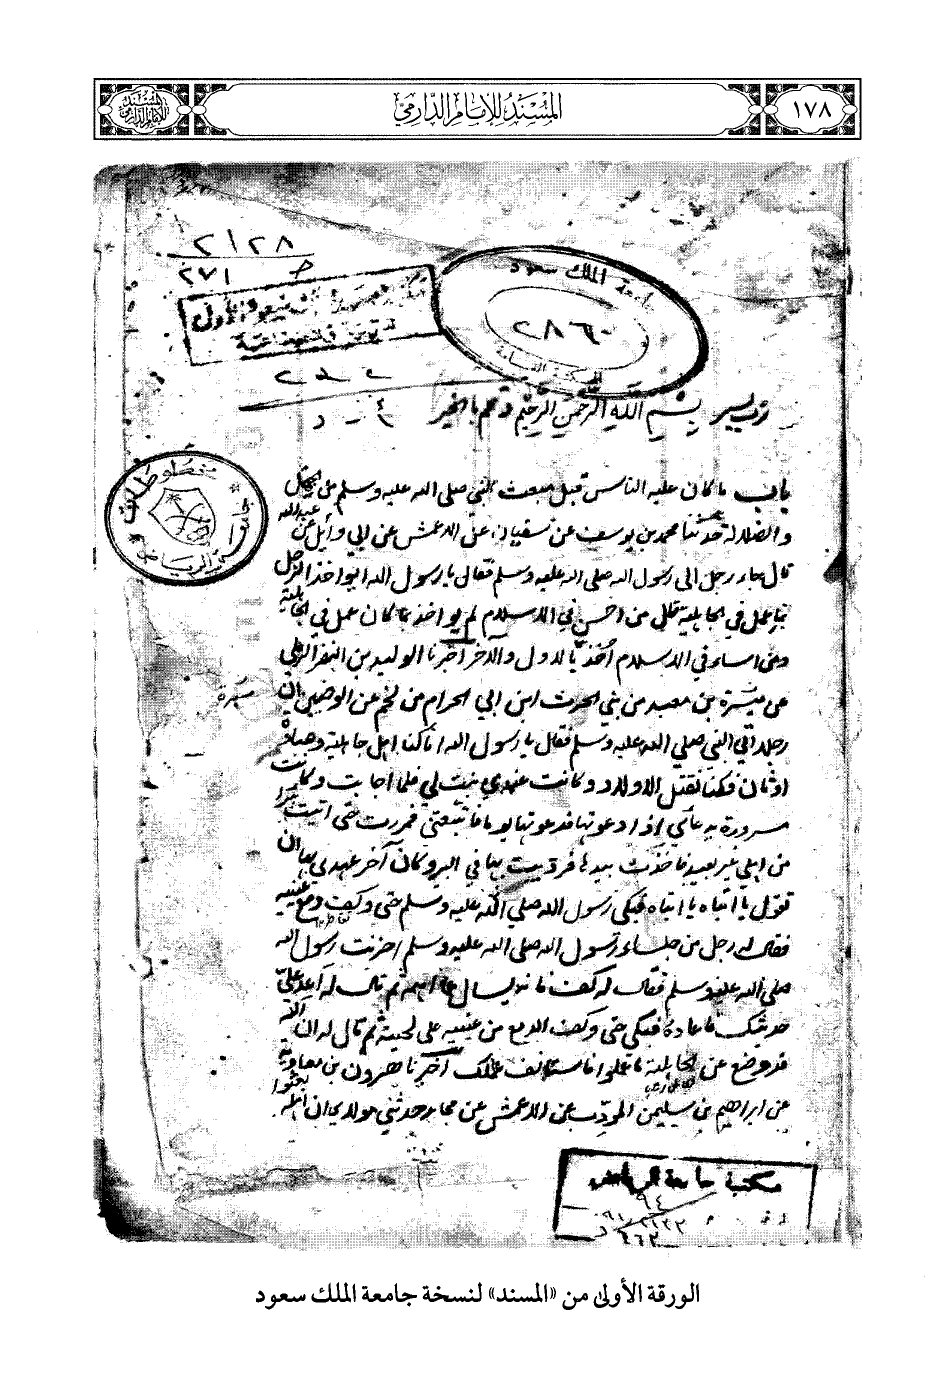 ١٧٨
المسند للإمام الدارمي
المسند للإمام الدارمي
٢١٢٨
٢٧١ ص
جامعة الملك سعود
٢٨٦٠
رب يسر بسم الله الرحمن الرحيم وتمم بالخير
مخطوطات
جامعة الرياض
باب ما كان عليه الناس قبل مبعث النبي صلى الله عليه وسلم من الجهل
والضلالة حدثنا محمد بن يوسف عن سفيان عن الاعمش عن ابي وائل عن عبد الله
قال جاء رجل الى رسول الله صلى الله عليه وسلم فقال يا رسول الله ايواخذ الرجل
بما عمل في الجاهلية قال من احسن في الاسلام لم يواخذ بما كان عمل في الجاهلية
ومن اساء في الاسلام أخذ بالاول والاخر اخبرنا الوليد بن النضر الرملي
عن مسرة بن معبد من بني الحرث ابن ابي الحرام من لخم عن الوضين ان
مسرة
رجلا اتى النبي صلى الله عليه وسلم فقال يا رسول الله انا كنا اهل جاهلية وعبادة
اوثان فكنا نقتل الاولاد وكانت عندي بنت لي فلما اجابت وكانت
مسرورة بدعائي إذا دعوتها فدعوتها يوما فاتبعتني فمررت حتى اتيت بيرا
من اهلي غير بعيد فاخذت بيدها فرديت بها في البير وكان آخر عهدي بها ان
تقول يا ابتاه يا ابتاه فبكى رسول الله صلى الله عليه وسلم حتى وكف دمع عينيه
فقال له رجل من جلساء رسول الله صلى الله عليه وسلم احزنت رسول الله
صلى الله عليه وسلم فقال له كف فانه يسال عما اهمه ثم قال له أعد علي
حديثك فاعاده فبكى حتى وكف الدمع من عينيه على لحيته ثم قال له ان الله
قد وضع عن الجاهلية ما عملوا فاستانف عملك آخرنا هرون بن معاوية
عن ابراهيم بن سليمن المودب عن الاعمش عن مجاهد حدثني مولاي ان اهله بعثوا
مكتبة جامعة الرياض
الورقة الأولى من «المسند» لنسخة جامعة الملك سعود